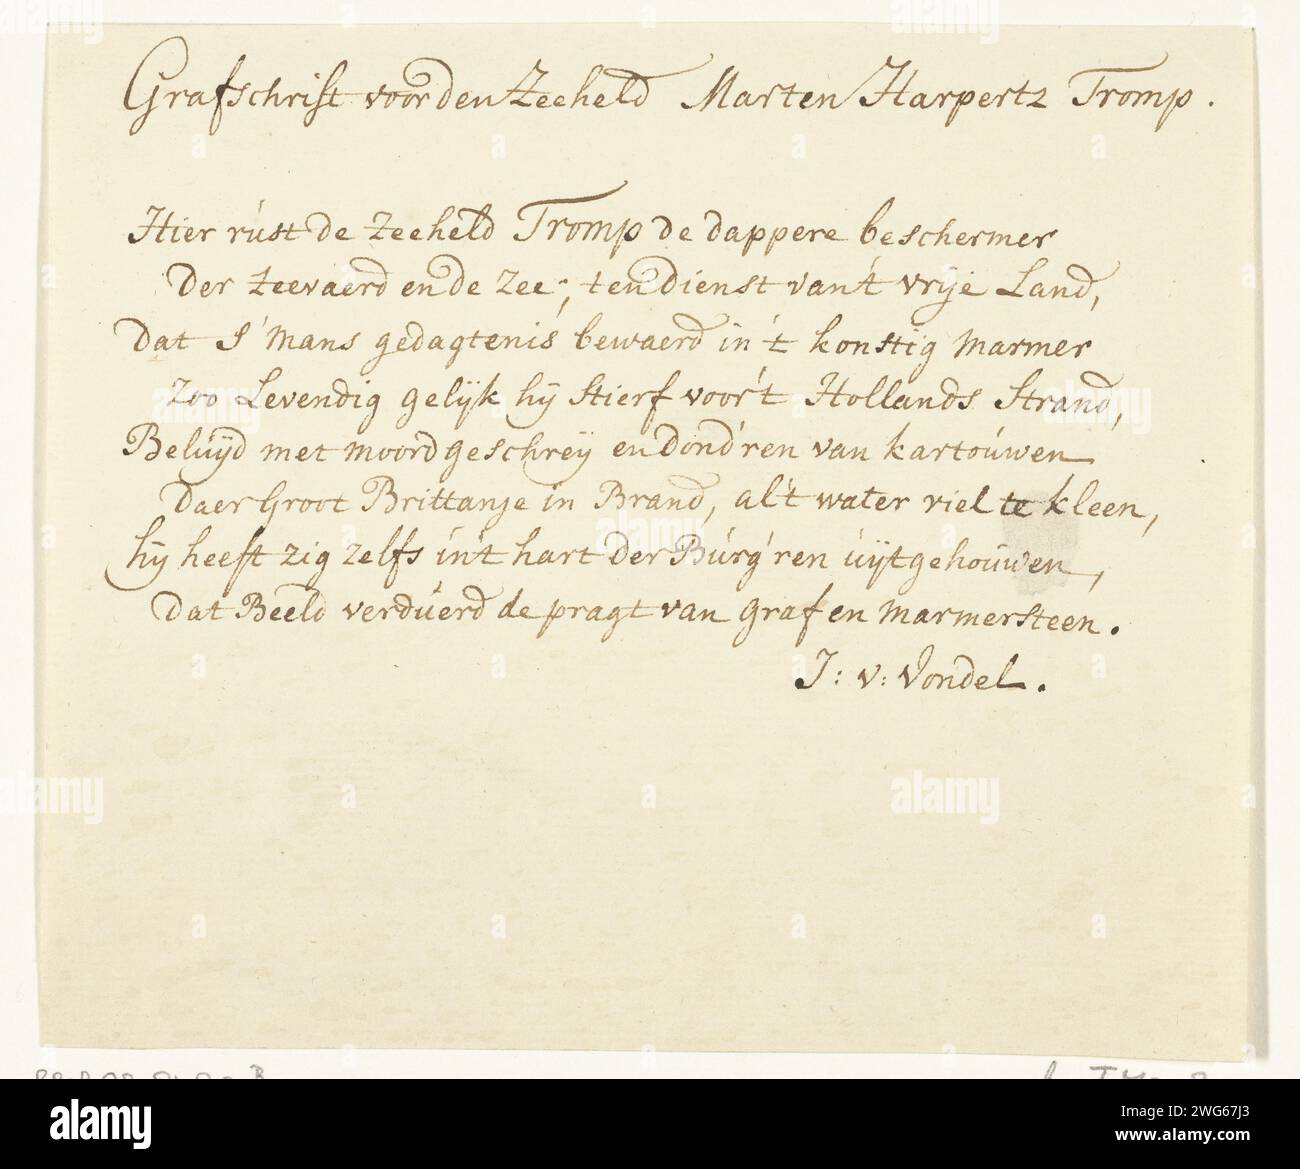 Grafschrift voor den Zeeheld Marten Harpertz Tromp.
Hier rúst de Zeeheld Tromp de dappere beschermer
Der Zeevaerd en de Zee, ten dienst van't vrije Land,
Dat S'Mans gedagtenis bewaerd in't konstig Marmer
Zoo Levendig gelijk hij Stierf voor't Hollands Strand,
Belúÿd met moordgeschreÿ en dond'ren van kartoúwen
Daer Groot Brittanje in Brand, al't water viel te kleen,
hij heeft zig zelfs in't hart der Búrg'ren úÿtgehoúwen,
Dat Beeld verdúerd de pragt van graf en marmersteen.
J: v: Vondel.
alamy
www.alamy.com
2WG67J3